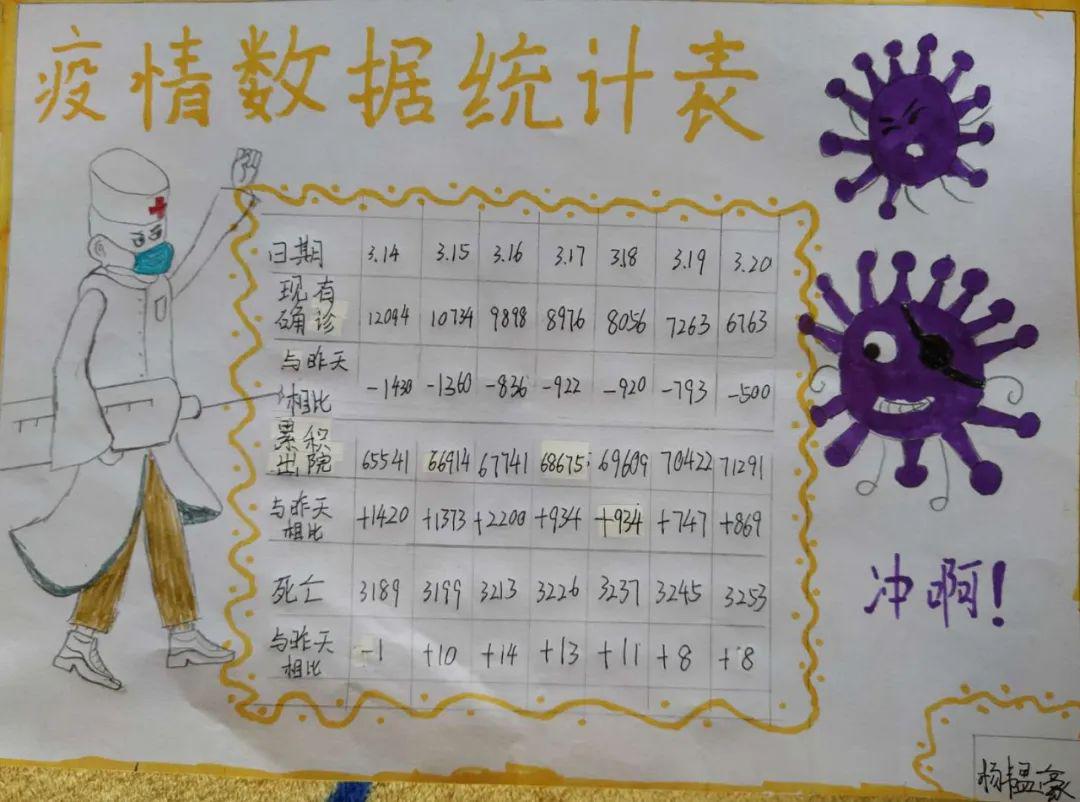 疫情数据统计表
日期 3.14 3.15 3.16 3.17 3.18 3.19 3.20
现有
确诊 12094 10734 9898 8976 8056 7263 6763
与昨天
相比 -1430 -1360 -836 -922 -920 -793 -500
累积
出院 65541 66914 67741 68675 69609 70422 71291
与昨天
相比 +1420 +1373 +2200 +934 +934 +747 +869
死亡 3189 3199 3213 3226 3237 3245 3253
与昨天
相比 -1 +10 +14 +13 +11 +8 +8
冲啊!
杨韫豪